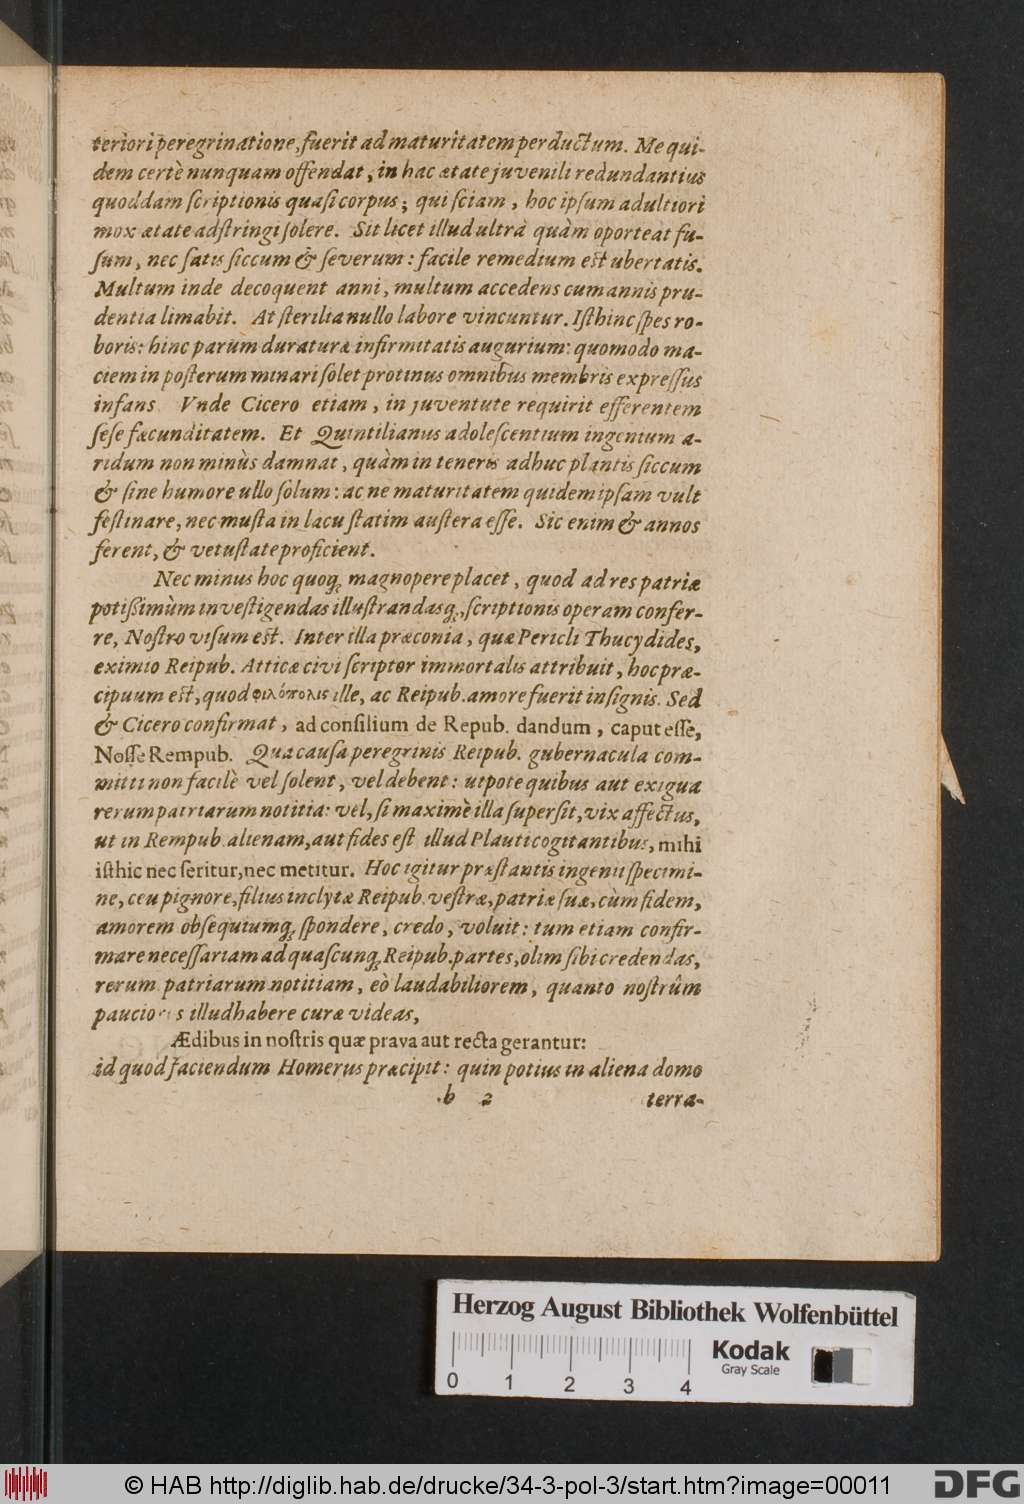 teriori peregrinatione, fuerit ad maturitatem perductum. Me qui-
dem certè nunquam offendat, in hac ætate juvenili redundantius
quoddam ſcriptionis quaſi corpus; qui ſciam, hoc ipſum adultiori
mox ætate adſtringi ſolere. Sit licet illud ultrà quàm oporteat fu-
ſum, nec ſatis ſiccum & ſeverum: facile remedium eſt ubertatis.
Multum inde decoquent anni, multum accedens cum annis pru-
dentia limabit. At ſterilia nullo labore vincuntur. Iſthinc ſpes ro-
boris: hinc parùm duraturæ infirmitatis augurium: quomodo ma-
ciem in poſterum minari ſolet protinus omnibus membris expreſſus
infans. Vnde Cicero etiam, in juventute requirit efferentem
ſeſe fæcunditatem. Et Quintilianus adoleſcentium ingenium a-
ridum non minùs damnat, quàm in teneris adhuc plantis ſiccum
& ſine humore ullo ſolum: ac ne maturitatem quidem ipſam vult
feſtinare, nec muſta in lacu ſtatim auſtera eſſe. Sic enim & annos
ferent, & vetuſtate proficient.
Nec minus hoc quoq; magnopere placet, quod ad res patriæ
potißimùm inveſtigendas illuſtrandasq;, ſcriptionis operam confer-
re, Noſtro viſum eſt. Inter illa præconia, quæ Pericli Thucydides,
eximio Reipub. Atticæ civi ſcriptor immortalis attribuit, hoc præ-
cipuum eſt, quod φιλόπολις ille, ac Reipub. amore fuerit inſignis. Sed
& Cicero confirmat, ad conſilium de Repub. dandum, caput eſſe,
Noſſe Rempub. Qua cauſa peregrinis Reipub. gubernacula com-
mitti non facilè vel ſolent, vel debent: utpote quibus aut exigua
rerum patriarum notitia: vel, ſi maximè illa ſuperſit, vix affectus,
ut in Rempub. alienam, aut fides eſt illud Plauti cogitantibus, mihi
iſthic nec ſeritur, nec metitur. Hoc igitur præſtantis ingenii ſpecimi-
ne, ceu pignore, filius inclytæ Reipub. veſtræ, patriæ ſuæ, cùm fidem,
amorem obſequiumq; ſpondere, credo, voluit: tum etiam confir-
mare neceſſariam ad quaſcunq; Reipub. partes, olim ſibi credendas,
rerum patriarum notitiam, eò laudabiliorem, quanto noſtrûm
paucioris illud habere curæ videas,
Ædibus in noſtris quæ prava aut recta gerantur:
id quod faciendum Homerus præcipit: quin potius in aliena domo
b 2 terra-
Herzog August Bibliothek Wolfenbüttel
Kodak
Gray Scale
0 1 2 3 4
© HAB http://diglib.hab.de/drucke/34-3-pol-3/start.htm?image=00011
DFG